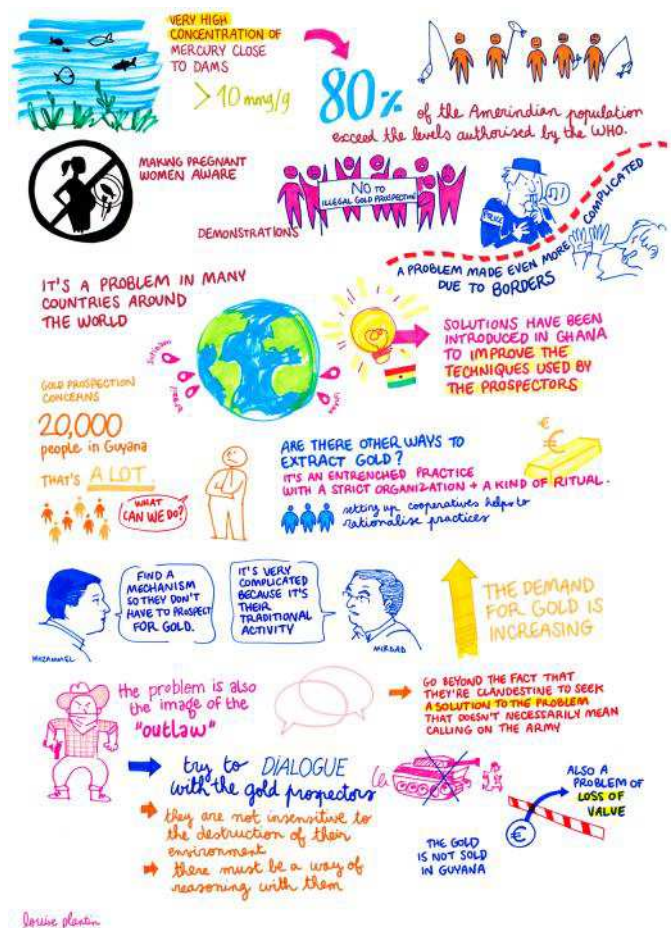 VERY HIGH
CONCENTRATION OF
MERCURY CLOSE
TO DAMS
> 10 mmg/g
80%
of the Amerindian population
exceed the levels authorised by the WHO.
MAKING PREGNANT
WOMEN AWARE
NO TO
ILLEGAL GOLD PROSPECTING
DEMONSTRATIONS
POLICE
A PROBLEM MADE EVEN MORE COMPLICATED
DUE TO BORDERS
IT'S A PROBLEM IN MANY
COUNTRIES AROUND
THE WORLD
SURINAM
SOLUTIONS HAVE BEEN
INTRODUCED IN GHANA
TO IMPROVE THE
TECHNIQUES USED BY
THE PROSPECTORS
GOLD PROSPECTION
CONCERNS
20,000
people in Guyana
THAT'S A LOT.
WHAT
CAN WE DO?
ARE THERE OTHER WAYS TO
EXTRACT GOLD?
IT'S AN ENTRENCHED PRACTICE
WITH A STRICT ORGANIZATION + A KIND OF RITUAL.
setting up cooperatives helps to
rationalise practices
€
FIND A
MECHANISM
SO THEY DON'T
HAVE TO PROSPECT
FOR GOLD.
MOZAMMEL
IT'S VERY
COMPLICATED
BECAUSE IT'S
THEIR
TRADITIONAL
ACTIVITY
MIRDAD
THE DEMAND
FOR GOLD IS
INCREASING
the problem is also
the image of the
"outlaw"
GO BEYOND THE FACT THAT
THEY'RE CLANDESTINE TO SEEK
A SOLUTION TO THE PROBLEM
THAT DOESN'T NECESSARILY MEAN
CALLING ON THE ARMY
try to DIALOGUE
with the gold prospectors
they are not insensitive to
the destruction of their
environment
there must be a way of
reasoning with them
ALSO A
PROBLEM OF
LOSS OF
VALUE
€
THE GOLD
IS NOT SOLD
IN GUYANA
louise plantin